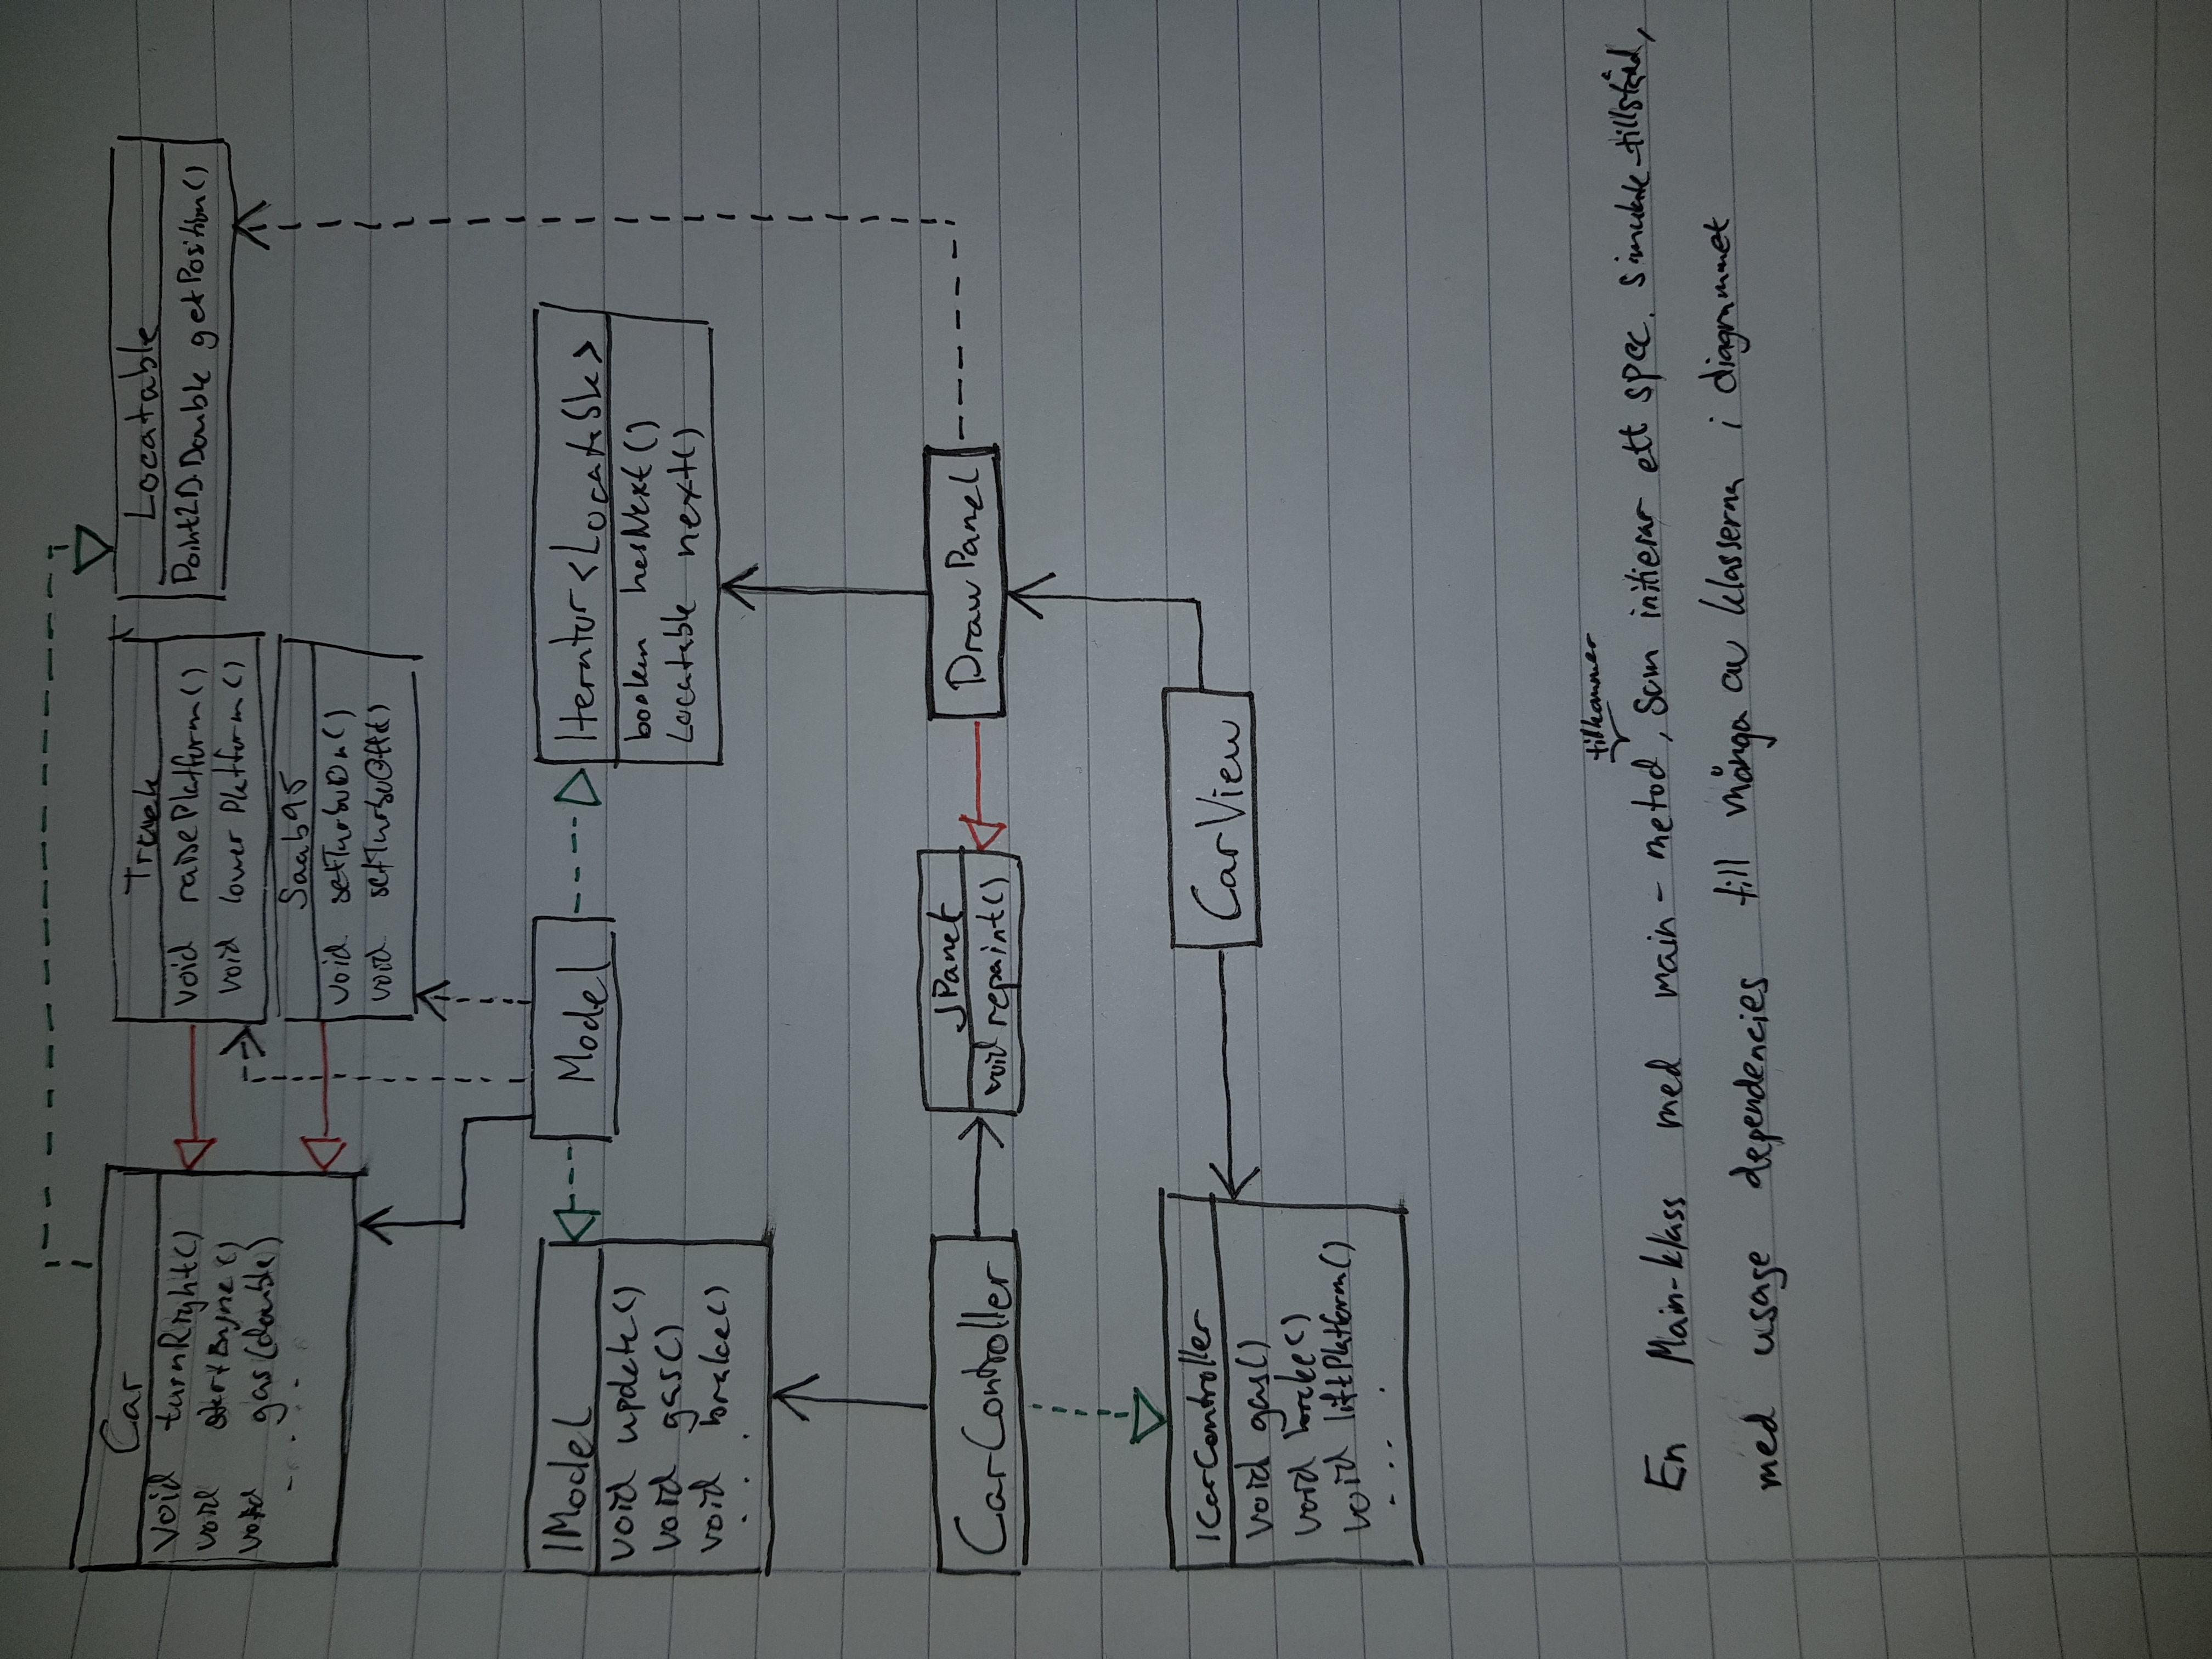 Car
void turnRight()
void startEngine()
void gas(double)
. . . .
Truck
void raisePlatform()
void lowerPlatform()
Locatable
Point2D.Double getPosition()
Saab95
void setTurboOn()
void setTurboOff()
IModel
void update()
void gas()
void brake()
. . .
Model
Iterator<Locatable>
boolean hasNext()
Locatable next()
CarController
JPanel
void repaint()
DrawPanel
ICarController
void gas()
void brake()
void liftPlatform()
. . . .
CarView
tillkommer
En Main-klass med main-metod, som initierar ett spec. simulate-tillstånd,
med usage dependencies till många av klasserna i diagrammet